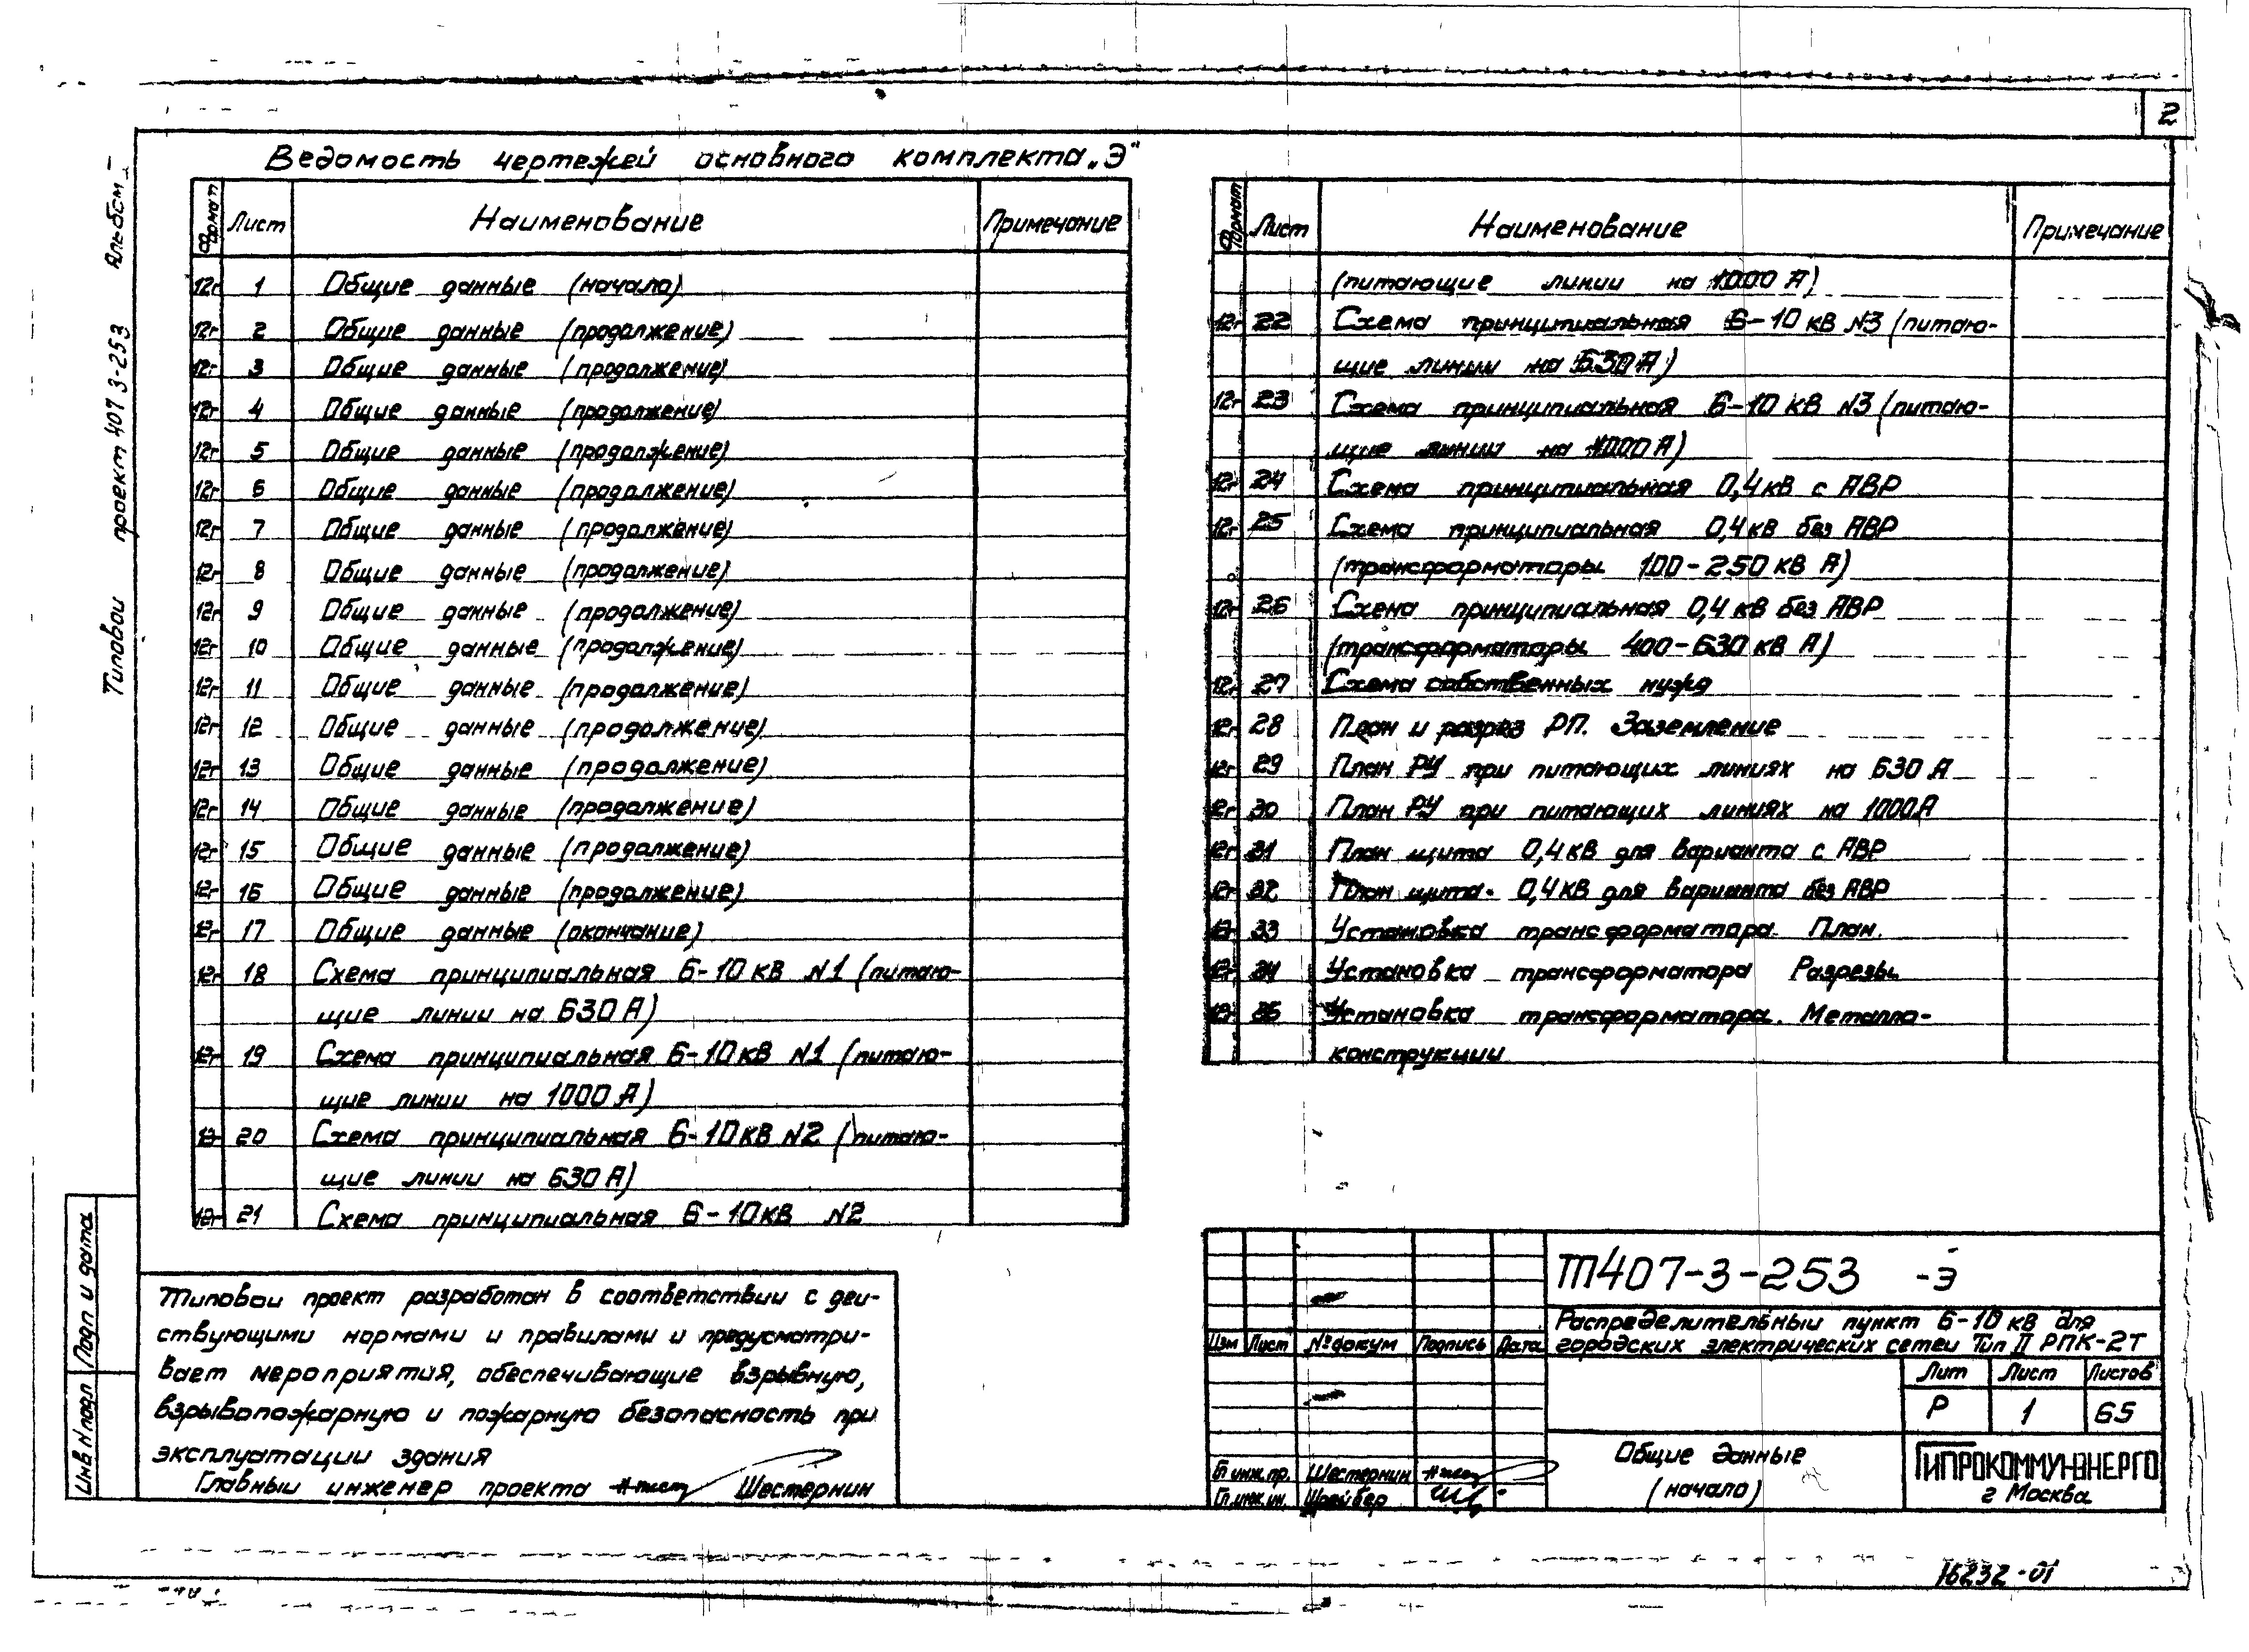 2
Типовой проект 407 3-253 Альбом
Ведомость чертежей основного комплекта „Э"
Формат Лист Наименование Примечание
12г 1 Общие данные (начало)
12г 2 Общие данные (продолжение)
12г 3 Общие данные (продолжение)
12г 4 Общие данные (продолжение)
12г 5 Общие данные (продолжение)
12г 6 Общие данные (продолжение)
12г 7 Общие данные (продолжение)
12г 8 Общие данные (продолжение)
12г 9 Общие данные (продолжение)
12г 10 Общие данные (продолжение)
12г 11 Общие данные (продолжение)
12г 12 Общие данные (продолжение)
12г 13 Общие данные (продолжение)
12г 14 Общие данные (продолжение)
12г 15 Общие данные (продолжение)
12г 16 Общие данные (продолжение)
12г 17 Общие данные (окончание)
12г 18 Схема принципиальная 6-10 кВ N1 (питаю-
щие линии на 630 А)
12г 19 Схема принципиальная 6-10 кВ N1 (питаю-
щие линии на 1000 А)
12г 20 Схема принципиальная 6-10 кВ N2 (питаю-
щие линии на 630 А)
12г 21 Схема принципиальная 6-10 кВ N2
Формат Лист Наименование Примечание
(питающие линии на 1000 А)
12г 22 Схема принципиальная 6-10 кВ N3 (питаю-
щие линии на 630 А)
12г 23 Схема принципиальная 6-10 кВ N3 (питаю-
щие линии на 1000 А)
12г 24 Схема принципиальная 0,4 кВ с АВР
12г 25 Схема принципиальная 0,4 кВ без АВР
(трансформаторы 100-250 кВ А)
12г 26 Схема принципиальная 0,4 кВ без АВР
(трансформаторы 400-630 кВ А)
12г 27 Схема собственных нужд
12г 28 План и разрез РП. Заземление
12г 29 План РУ при питающих линиях на 630 А
12г 30 План РУ при питающих линиях на 1000А
12г 31 План щита 0,4 кВ для варианта с АВР
12г 32 План щита 0,4 кВ для варианта без АВР
12г 33 Установка трансформатора. План.
12г 34 Установка трансформатора Разрезы
12г 35 Установка трансформатора. Металло-
конструкции
Типовой проект разработан в соответствии с дей-
ствующими нормами и правилами и предусматри-
вает мероприятия, обеспечивающие взрывную,
взрывопожарную и пожарную безопасность при
эксплуатации здания
Главный инженер проекта Шестернин
Инв N подл Подп и дата
ТП407-3-253 -Э
Распределительный пункт 6-10 кВ для
городских электрических сетей Тип II РПК-2Т
Изм Лист № докум Подпись Дата
Лит Лист Листов
Р 1 65
Общие данные
(начало)
Гл инж. пр. Шестернин
Гл. инж. ин. Шрейбер
ГИПРОКОММУНЭНЕРГО
г Москва
16232-01